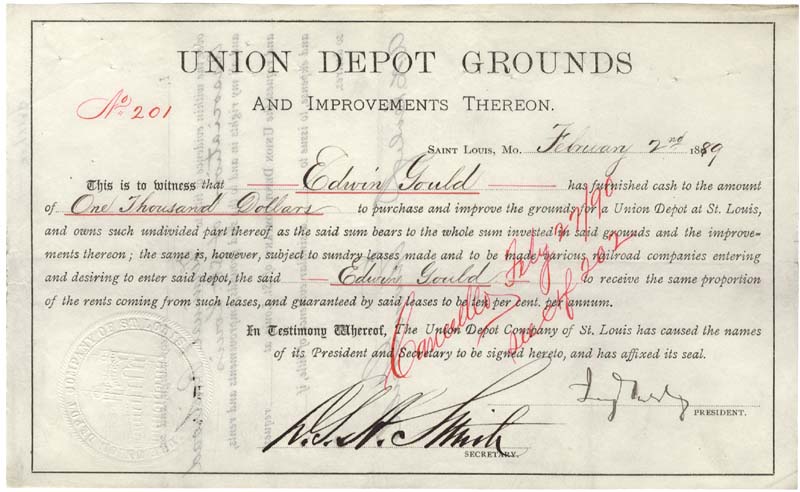 UNION DEPOT GROUNDS
AND IMPROVEMENTS THEREON.
No. 201
SAINT LOUIS, MO. February 2nd 1889
This is to witness that Edwin Gould has furnished cash to the amount
of One Thousand Dollars to purchase and improve the grounds for a Union Depot at St. Louis,
and owns such undivided part thereof as the said sum bears to the whole sum invested in said grounds and the improve-
ments thereon; the same is, however, subject to sundry leases made and to be made various railroad companies entering
and desiring to enter said depot, the said Edwin Gould to receive the same proportion
of the rents coming from such leases, and guaranteed by said leases to be ten per cent. per annum.
Cancelled Feby 27/90
see Ctf 202
In Testimony Whereof, The Union Depot Company of St. Louis has caused the names
of its President and Secretary to be signed hereto, and has affixed its seal.
PRESIDENT.
D.S.H. Smith
SECRETARY.
THE UNION DEPOT COMPANY OF ST. LOUIS